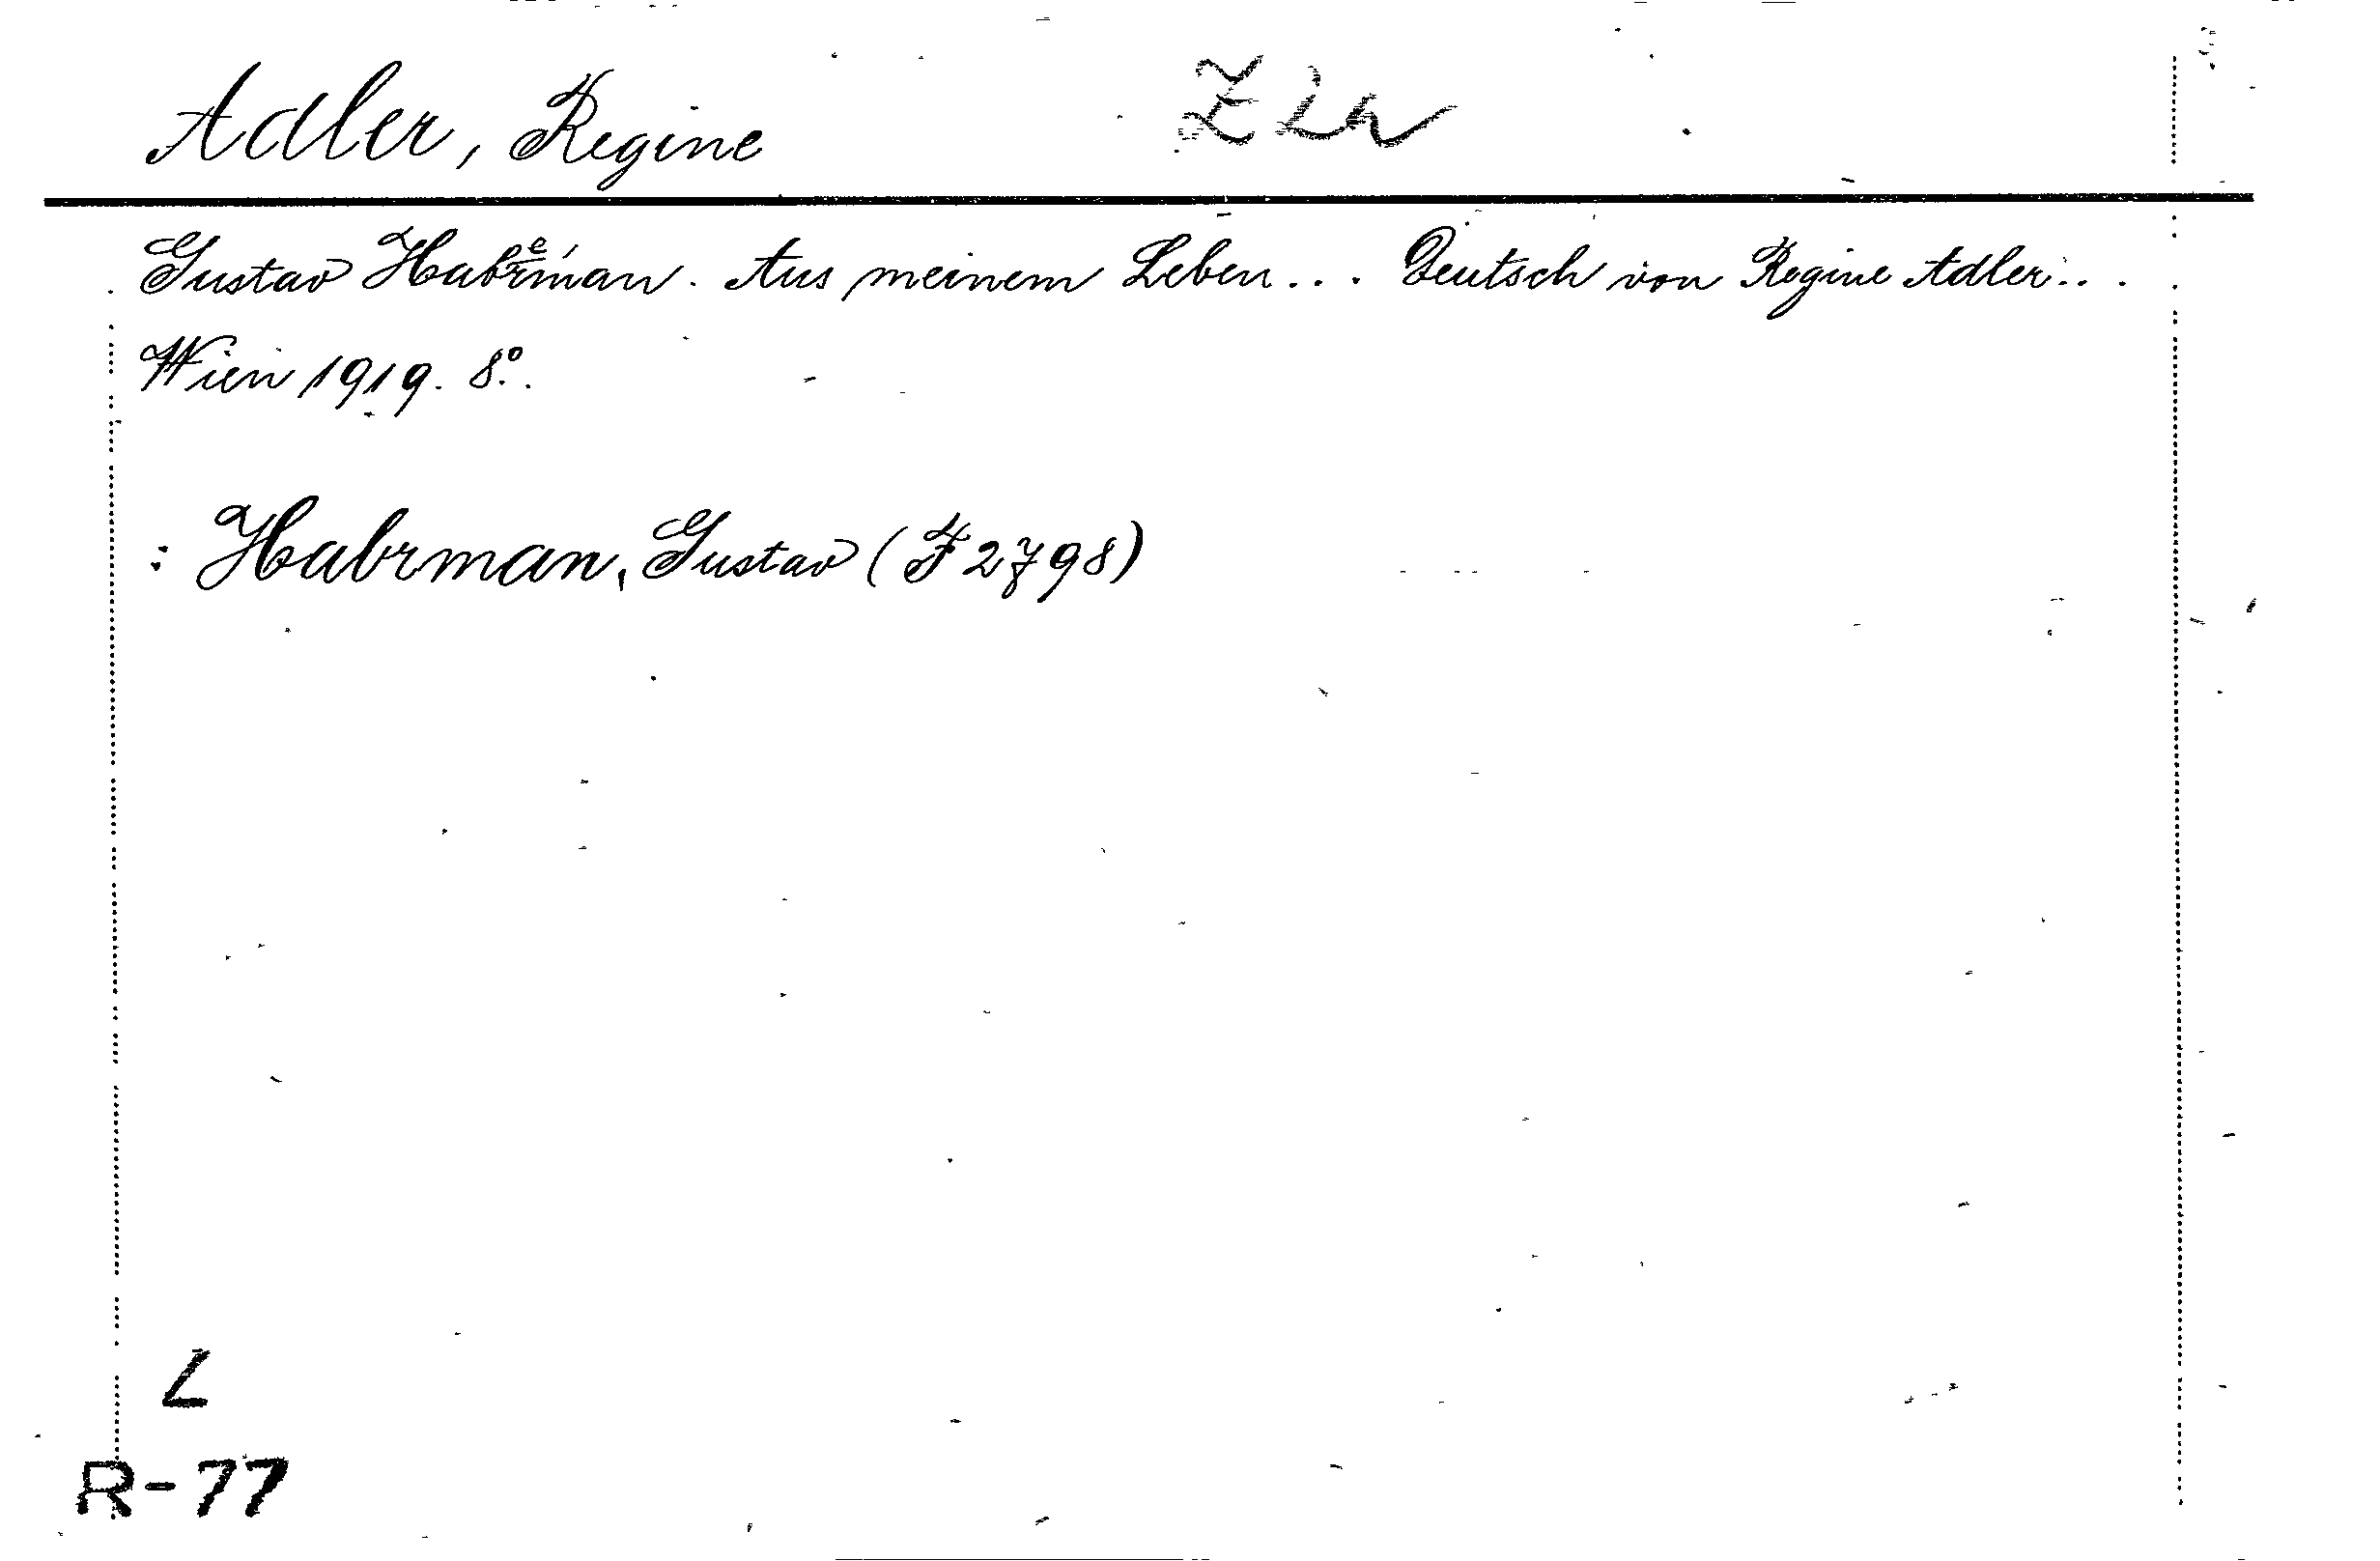 Adler, Regine
Gustav Habrman. Aus meinem Leben... Deutsch von Regine Adler...
Wien 1919. 8°.
: Habrman, Gustav (F 2798)
L
R-77